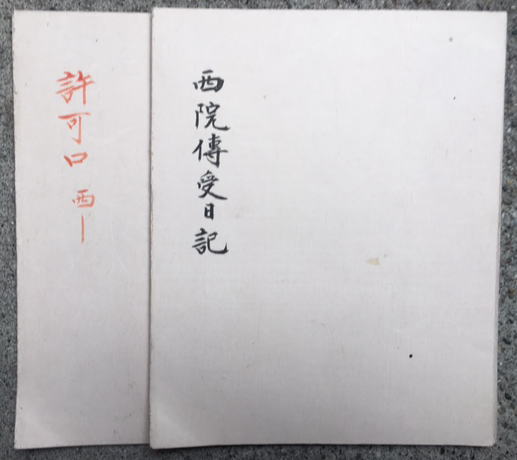 西院傳受日記
許可口 西｜